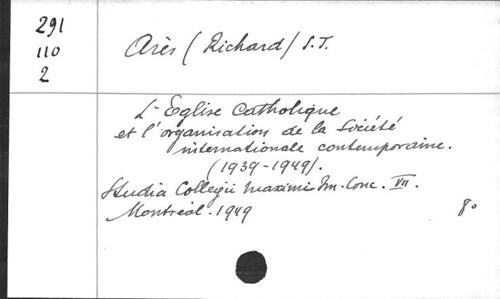 291
110
2
Arès (Richard) S.J.
L'Eglise Catholique
et l'organisation de la Société
internationale contemporaine.
(1939-1949).
Studia Collegii Maximi Im. Conc. VII.
Montréal. 1949
8°